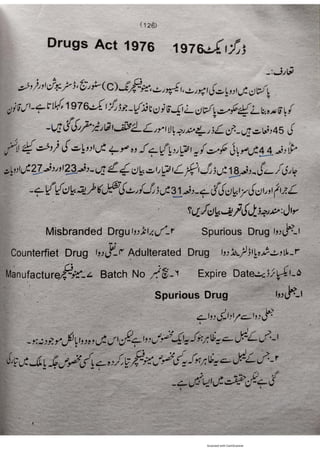 (126)
Drugs Act 1976 ڈرگز ایکٹ 1976
تعارف:۔
پاکستان میں ادویات کی امپورٹ، ایکسپورٹ، مینوفیکچرنگ (C) سٹوریج، ڈسٹری بیوشن اور فروخت
کو باقاعدہ بنانے کیلئے حکومت پاکستان نے ایک قانون نافذ کیا۔ جو ڈرگز ایکٹ 1976 کہلاتا ہے۔ اس قانون
کی 45 دفعات ہیں۔ جن کے ذریعے مندرجہ بالا امور کے لئے مختلف اتھارٹیز مقرر کی گئی ہیں۔
مثلاً دفعہ 44 میں صوبائی حکومت کو یہ اختیار دیا گیا ہے کہ وہ صوبے میں ادویات کی فروخت کیلئے لائسنس
جاری کرے گی۔ دفعہ 18 میں ڈرگ انسپکٹر کے اختیارات بیان کیے گئے ہیں۔ دفعہ 23 اور دفعہ 27 میں ادویات
کے جرائم اور ان کی سزا بیان کی گئی ہے۔ دفعہ 31 میں ڈرگ کورٹ کی تشکیل کا طریقہ بیان کیا گیا ہے۔
سوال: مندرجہ ذیل کی تعریف بیان کریں؟
۱۔ جعلی دوا Spurious Drug ۲۔ مس برانڈ دوا Misbranded Drgu
۳۔ ملاوٹ شدہ یا اڈلٹرٹڈ دوا Adulterated Drug ۴۔ نقلی دوا Counterfiet Drug
۵۔ ایکسپائر ڈیٹ Expire Date ۶۔ بیچ نمبر Batch No ۷۔ مینوفیکچر Manufacture
۱۔ جعلی دوا Spurious Drug
جعلی دوا سے مراد ایسی دوا ہے
۱۔ جس کے لیبل سے یہ ظاہر ہو کہ یہ ایک مخصوص دوا ہے لیکن اس میں وہ دوا بالکل موجود نہ ہو۔
۲۔ جس کے لیبل سے یہ ظاہر ہو کہ یہ کسی مخصوص مینوفیکچرر تیار کردہ ہے یا کسی مخصوص جگہ یا ملک میں تیار کی
گئی ہے لیکن حقیقت میں ایسا نہیں ہے۔
Scanned with CamScanner